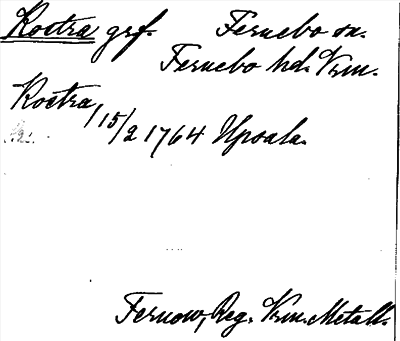 Kostra grf. Fernebo sn.
Fernebo hd. Vrm.
Kostra, 15/2 1764 Upsala.
Fernow, Reg. Vrm. Metall.